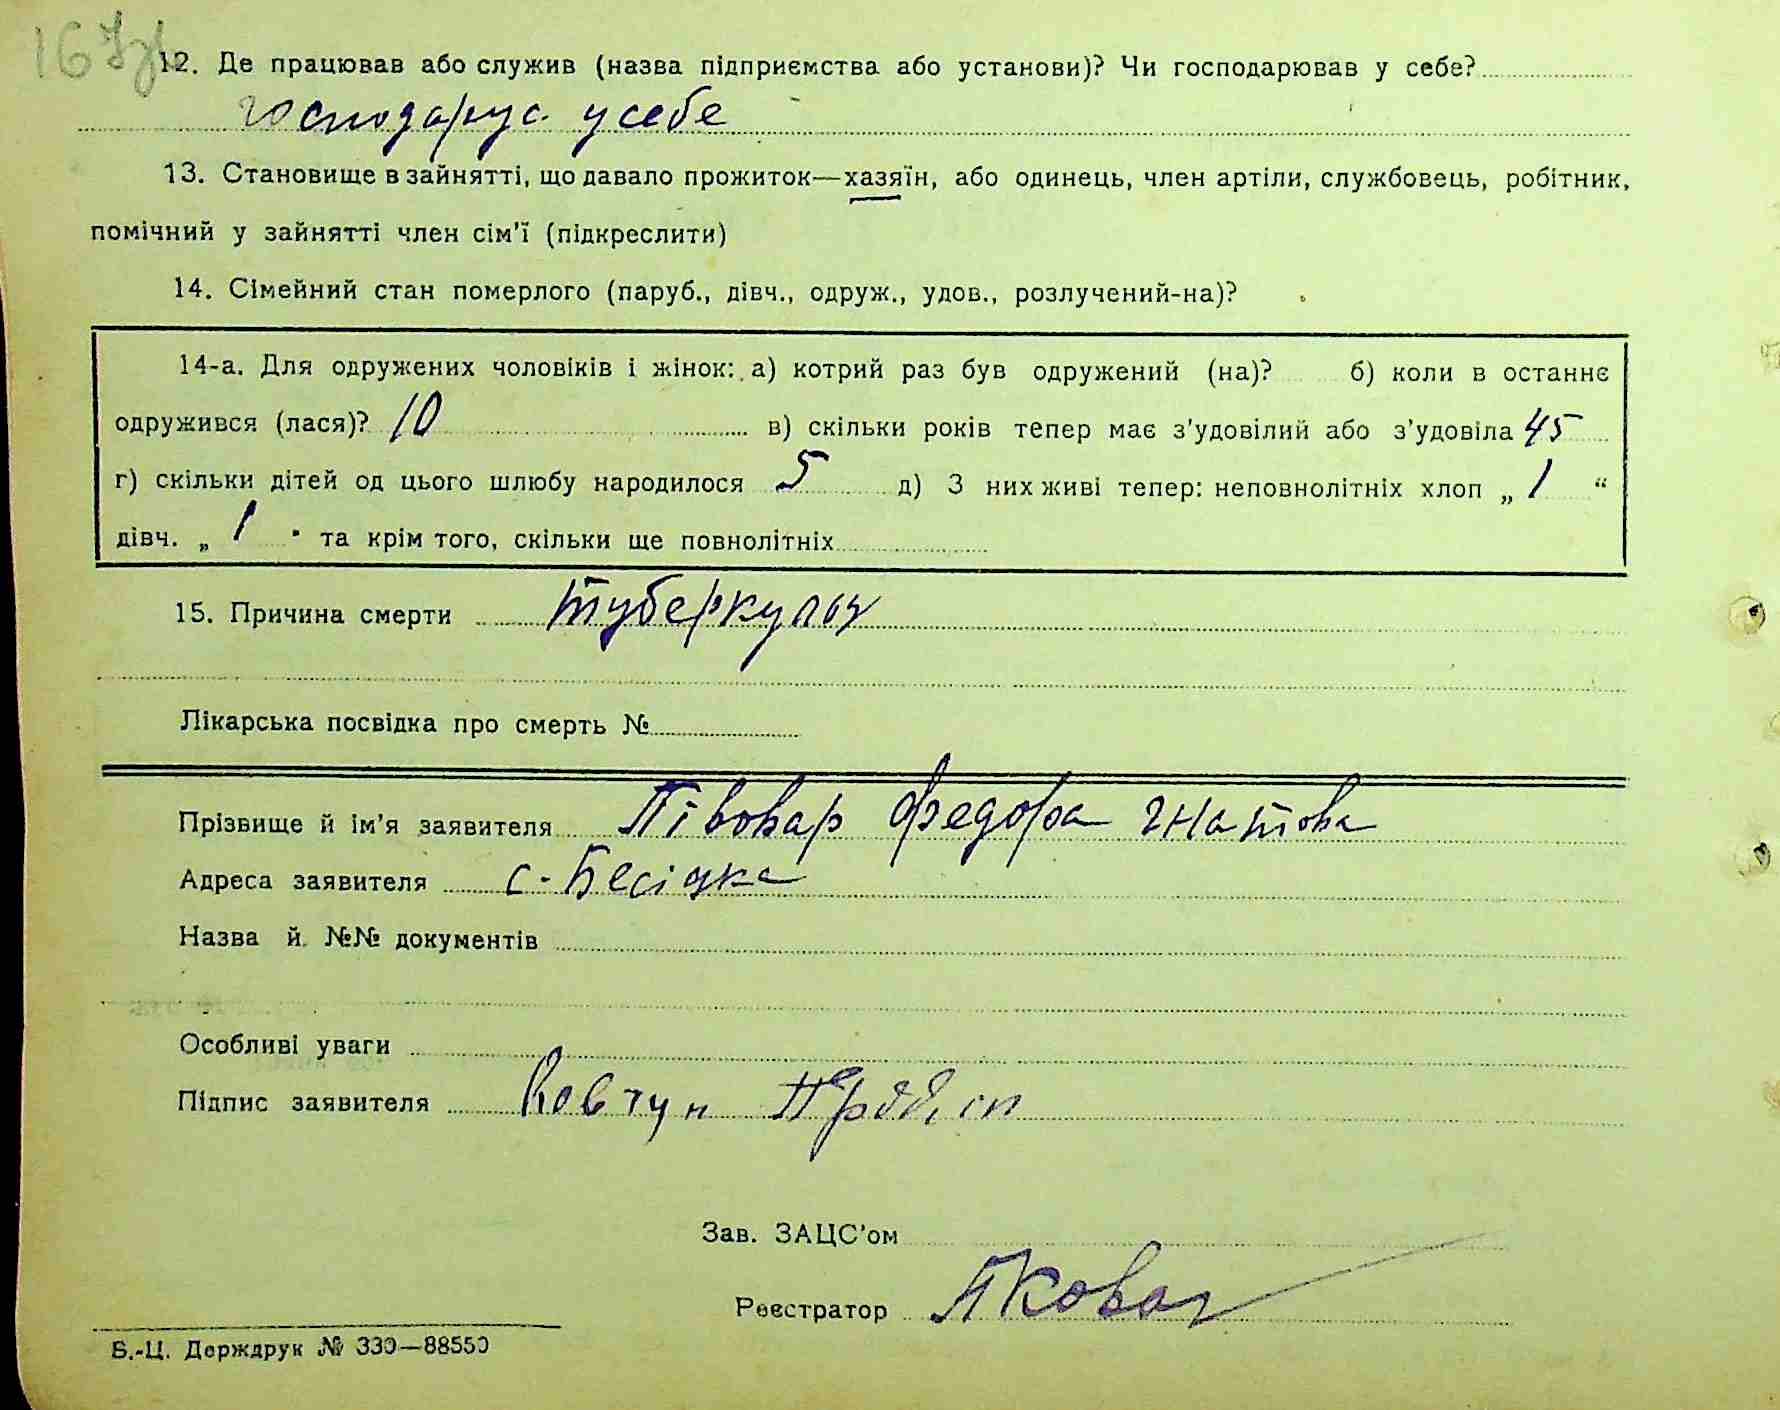 167
12. Де працював або служив (назва підприємства або установи)? Чи господарював у себе?
господарує у себе
13. Становище в зайнятті, що давало прожиток—хазяїн, або одинець, член артіли, службовець, робітник,
помічний у зайнятті член сім'ї (підкреслити)
14. Сімейний стан померлого (паруб., дівч., одруж., удов., розлучений-на)?
14-а. Для одружених чоловіків і жінок: а) котрий раз був одружений (на)? б) коли в останнє
одружився (лася)? 10 в) скільки років тепер має з'удовілий або з'удовіла 45
г) скільки дітей од цього шлюбу народилося 5 д) З них живі тепер: неповнолітніх хлоп „ 1 “
дівч. „ 1 " та крім того, скільки ще повнолітніх
15. Причина смерти туберкульоз
Лікарська посвідка про смерть №
Прізвище й ім'я заявителя Півовар Федора Гнатова
Адреса заявителя с. Бесідка
Назва й №№ документів
Особливі уваги
Підпис заявителя Ковтун
Зав. ЗАЦС'ом
Реєстратор
Б.-Ц. Держдрук № 330—88550